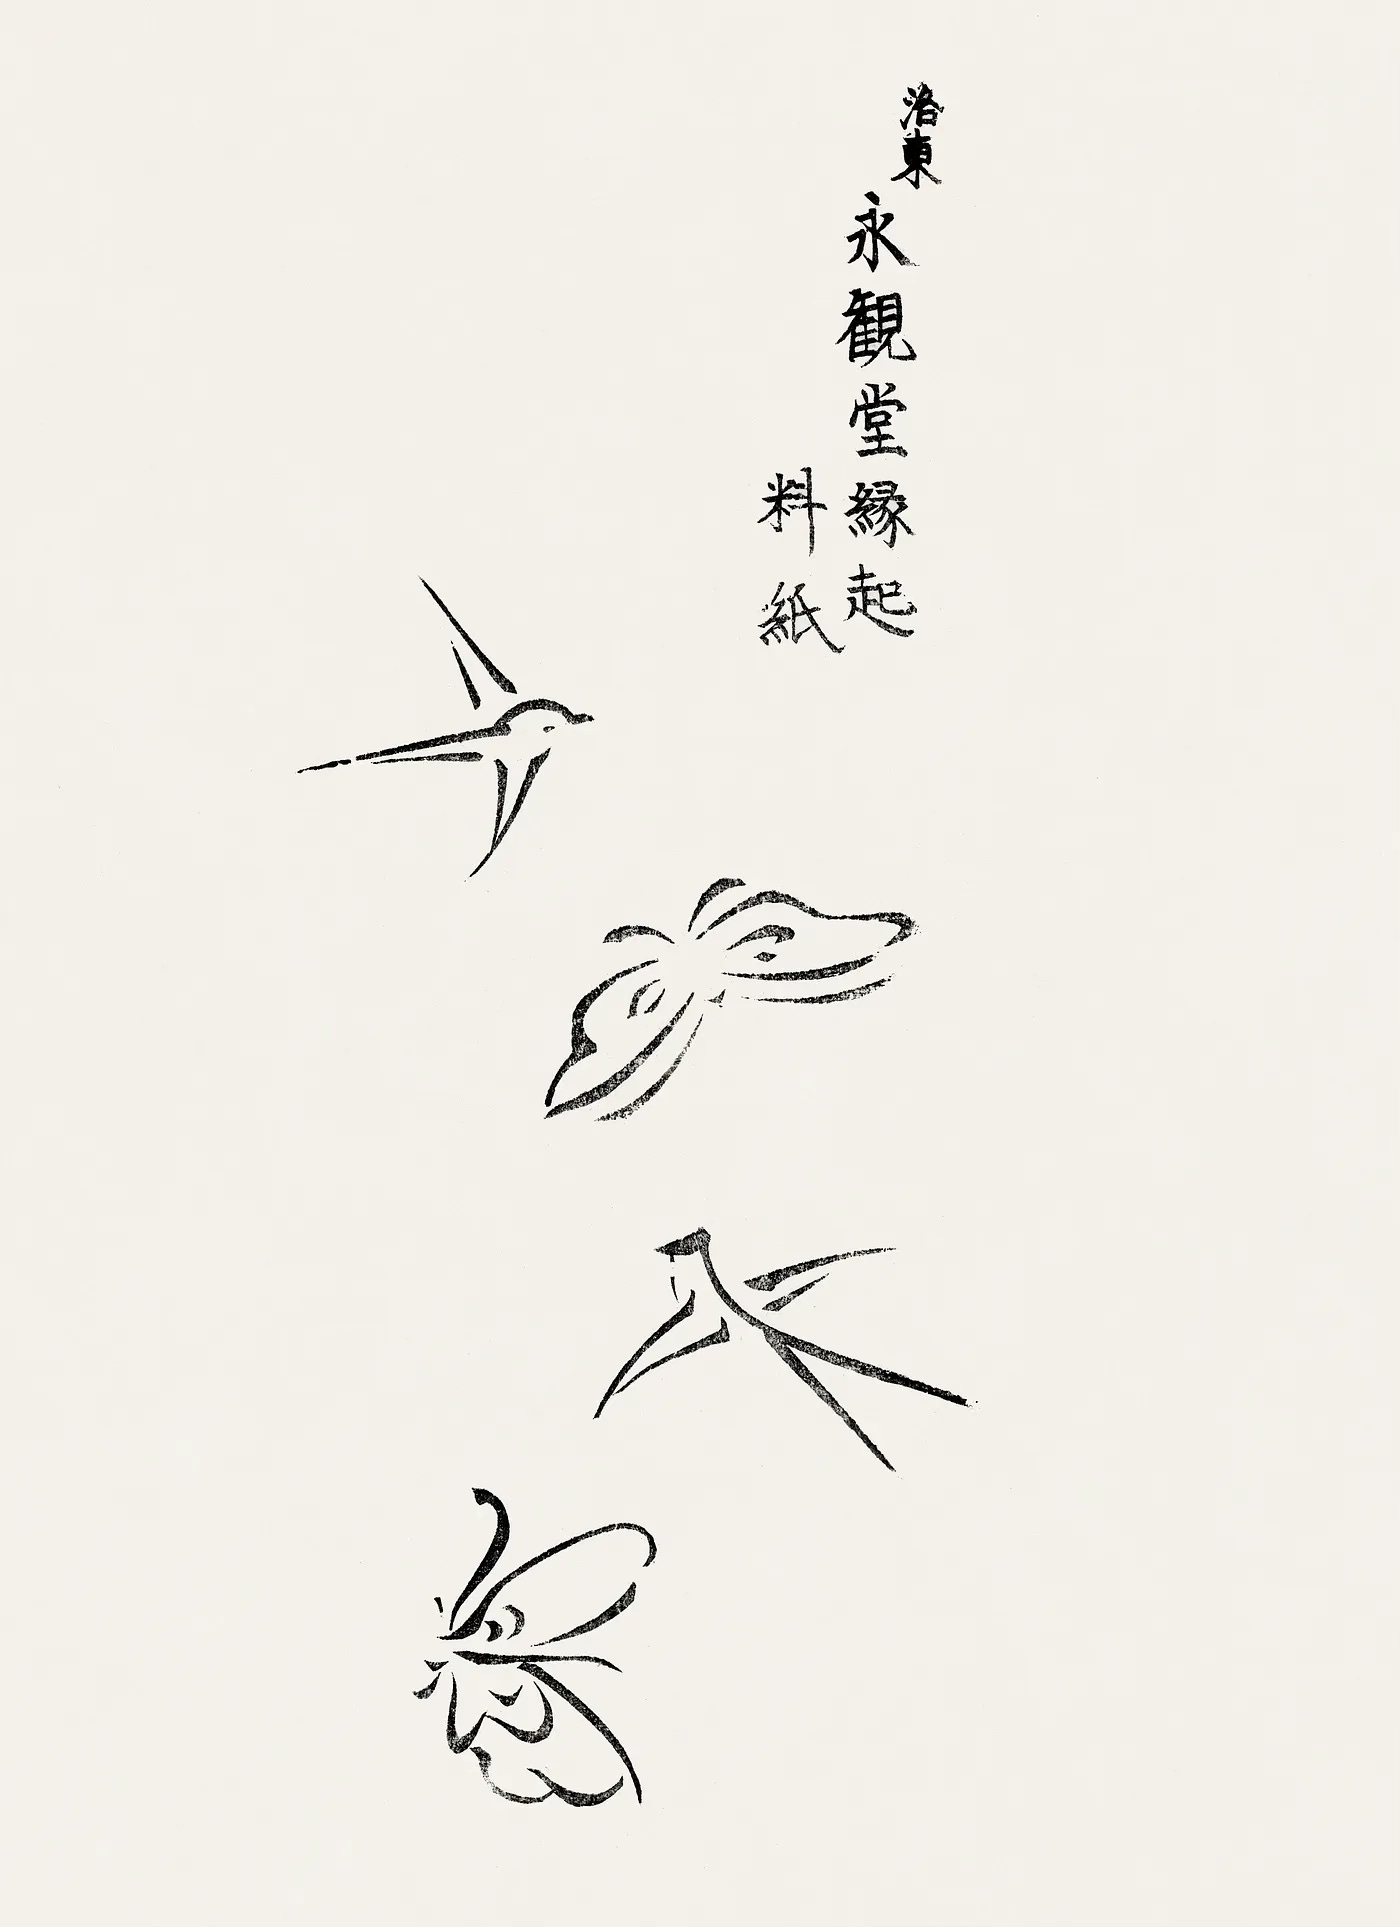 洛東
永観堂縁起
料紙